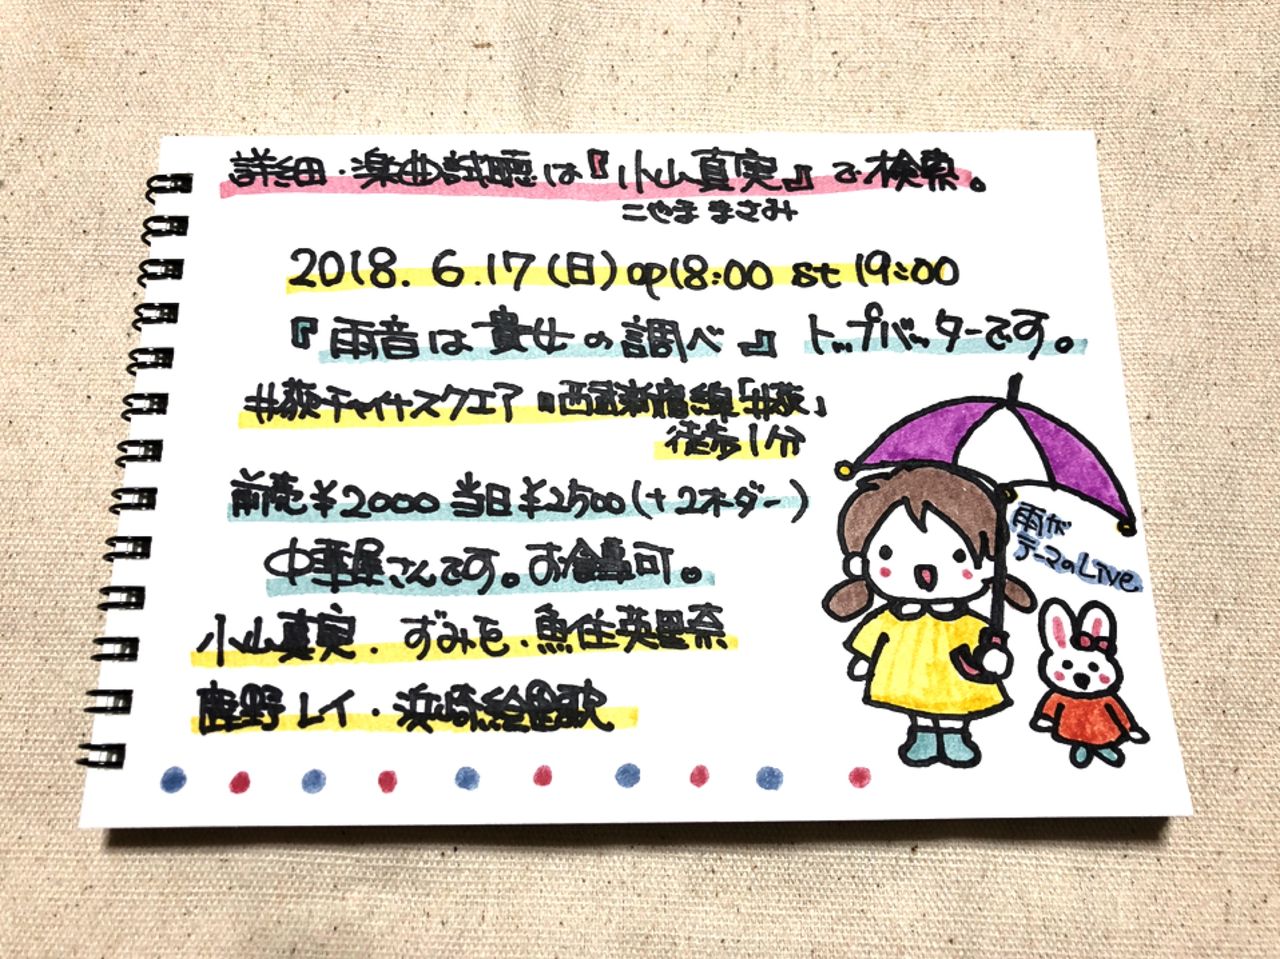 詳細・楽曲試聴は『小山真実』で検索。
こやま まさみ
2018. 6.17(日)op18:00 st 19:00
『雨音は貴女の調べ』トップバッターです。
井荻チャイナスクエア 西武新宿線「井荻」
徒歩1分
前売¥2000 当日¥2500(+2オーダー)
中華屋さんです。お食事可。
雨が
テーマのLive
小山真実. ずみを・魚住英里奈
鹿野レイ・浜崎絵里歌